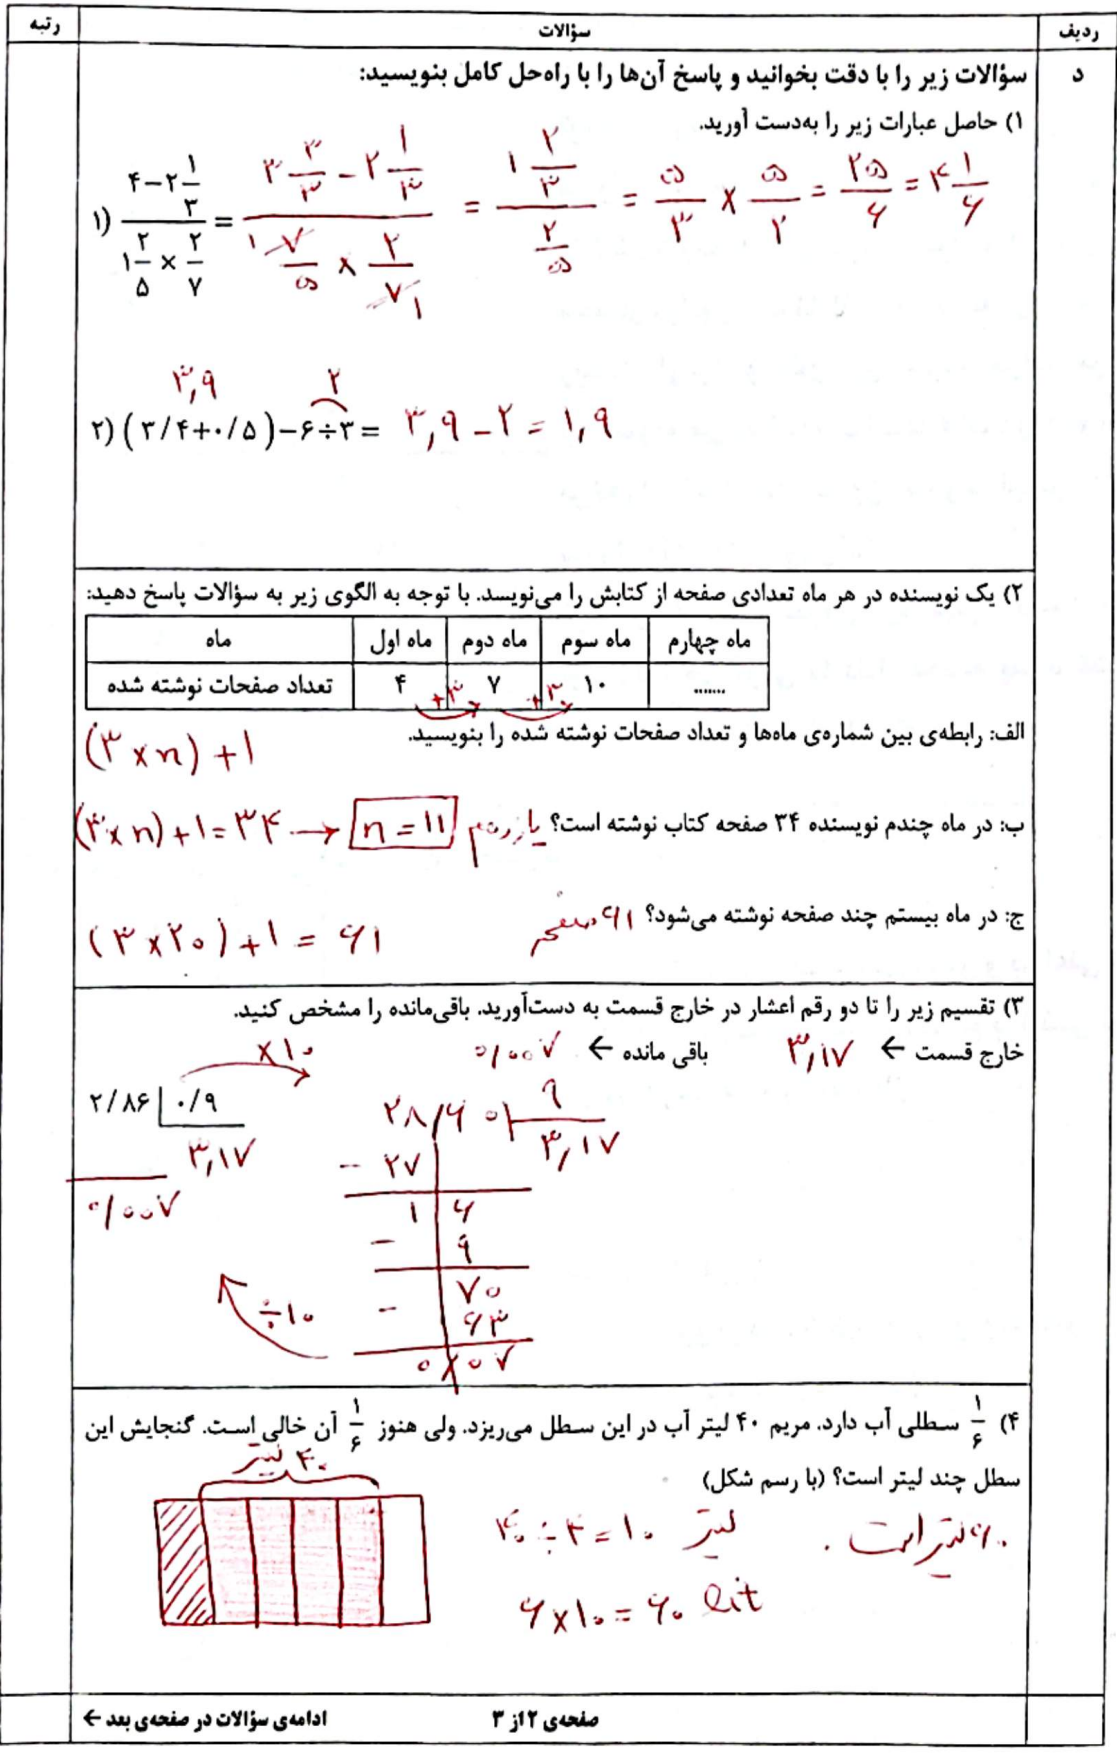 ردیف سؤالات رتبه
د سؤالات زیر را با دقت بخوانید و پاسخ آن‌ها را با راه‌حل کامل بنویسید:
۱) حاصل عبارات زیر را به‌دست آورید.
۱) (۴-۲ ۱/۳)/(۱ ۲/۵ × ۲/۷) = (۳ ۳/۳ - ۲ ۱/۳)/(۷/۵ × ۲/۷) = (۱ ۲/۳)/(۲/۵) = ۵/۳ × ۵/۲ = ۲۵/۶ = ۴ ۱/۶
۱ ۱
۳,۹ ۲
۲) (۳/۴+۰/۵)-۶÷۳= ۳,۹-۲=۱,۹
۲) یک نویسنده در هر ماه تعدادی صفحه از کتابش را می‌نویسد. با توجه به الگوی زیر به سؤالات پاسخ دهید:
ماه ماه اول ماه دوم ماه سوم ماه چهارم
تعداد صفحات نوشته شده ۴ ۷ ۱۰ .......
+۳ +۳
الف: رابطه‌ی بین شماره‌ی ماه‌ها و تعداد صفحات نوشته شده را بنویسید.
(۳×n)+۱
ب: در ماه چندم نویسنده ۳۴ صفحه کتاب نوشته است؟ یازدهم
(۳×n)+۱=۳۴ → n=۱۱
ج: در ماه بیستم چند صفحه نوشته می‌شود؟ ۶۱ صفحه
(۳×۲۰)+۱=۶۱
۳) تقسیم زیر را تا دو رقم اعشار در خارج قسمت به دست‌آورید. باقی‌مانده را مشخص کنید.
خارج قسمت ← ۳,۱۷ باقی مانده ← ۰/۰۰۷
×۱۰
۲/۸۶ ۰/۹
۳,۱۷
۰/۰۰۷
۲۸/۶۰ ۹
۳,۱۷
- ۲۷
۱ ۶
- ۹
۷۰
- ۶۳
۰/۰۷
÷۱۰
۴) ۱/۶ سطلی آب دارد. مریم ۴۰ لیتر آب در این سطل می‌ریزد. ولی هنوز ۱/۶ آن خالی است. گنجایش این
سطل چند لیتر است؟ (با رسم شکل)
۴۰ لیتر
۴۰÷۴=۱۰ لیتر
۶۰ لیتر است.
۶×۱۰=۶۰ lit
صفحه‌ی ۲ از ۳
ادامه‌ی سؤالات در صفحه‌ی بعد ←